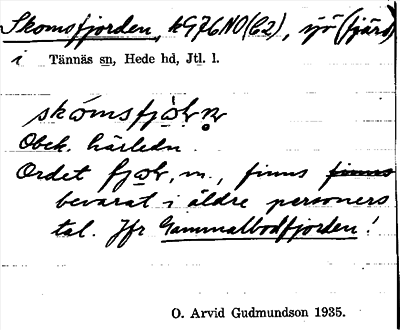 Skomsfjorden, k976NO(C2), sjö (fjärd)
i Tännäs sn, Hede hd, Jtl. l.
skómsfjòrn
Obek. härledn.
Ordet fjor, m., finns finns
bevarat i äldre personers
tal. Jfr Gammalbodfjorden!
O. Arvid Gudmundson 1935.